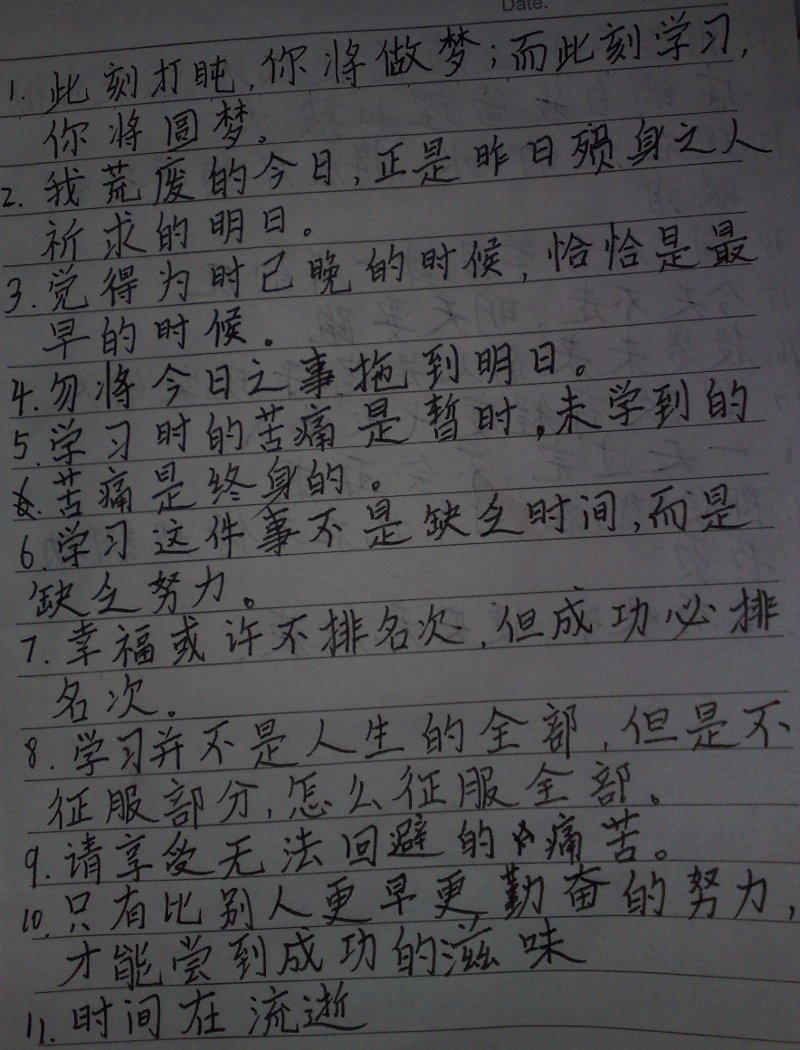 Date.
1. 此刻打盹,你将做梦;而此刻学习,
你将圆梦。
2. 我荒废的今日,正是昨日殒身之人
祈求的明日。
3. 觉得为时已晚的时候,恰恰是最
早的时候。
4. 勿将今日之事拖到明日。
5. 学习时的苦痛是暂时,未学到的
苦痛是终身的。
6. 学习这件事不是缺乏时间,而是
缺乏努力。
7. 幸福或许不排名次,但成功必排
名次。
8. 学习并不是人生的全部,但是不
征服部分,怎么征服全部。
9. 请享受无法回避的痛苦。
10. 只有比别人更早更勤奋的努力,
才能尝到成功的滋味
11. 时间在流逝